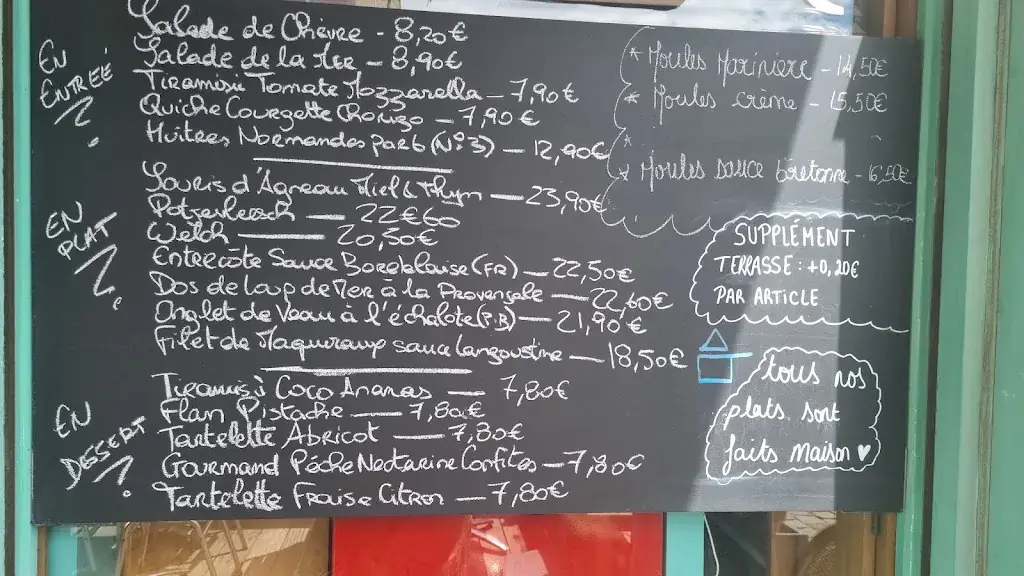 EN
ENTRÉE
Salade de Chèvre - 8,20€
Salade de la Mer - 8,90€
Tiramisu Tomate Mozzarella - 7,90€
Quiche Courgette Chorizo - 7,90€
Huitres Normandes par 6 (N°3) - 12,90€
EN
PLAT
Souris d'Agneau Miel & Thym - 23,90€
Potjevleesch - 22€60
Welch - 20,50€
Entrecôte Sauce Bordelaise (FR) - 22,50€
Dos de Loup de Mer à la Provençale - 22,60€
Onglet de Veau à l'échalote (P.B) - 21,90€
Filet de Maquereaux sauce Langoustine - 18,50€
EN
DESSERT
Tiramisu Coco Ananas - 7,80€
Flan Pistache - 7,80€
Tartelette Abricot - 7,80€
Gourmand Pêche Nectarine Confites - 7,80€
Tartelette Fraise Citron - 7,80€
* Moules Marinière - 14,50€
* Moules crème - 15,50€
* Moules sauce bretonne - 16,50€
SUPPLÉMENT
TERRASSE : +0,20€
PAR ARTICLE
tous nos
plats sont
faits maison ♥